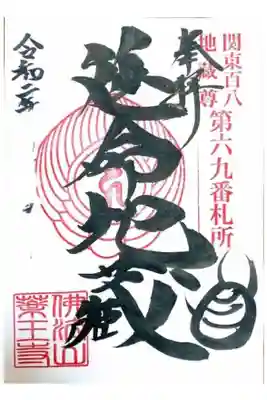 関東百八
地蔵尊
第六九番札所
奉拝
延命地蔵
令和二年
佛法山
薬王寺